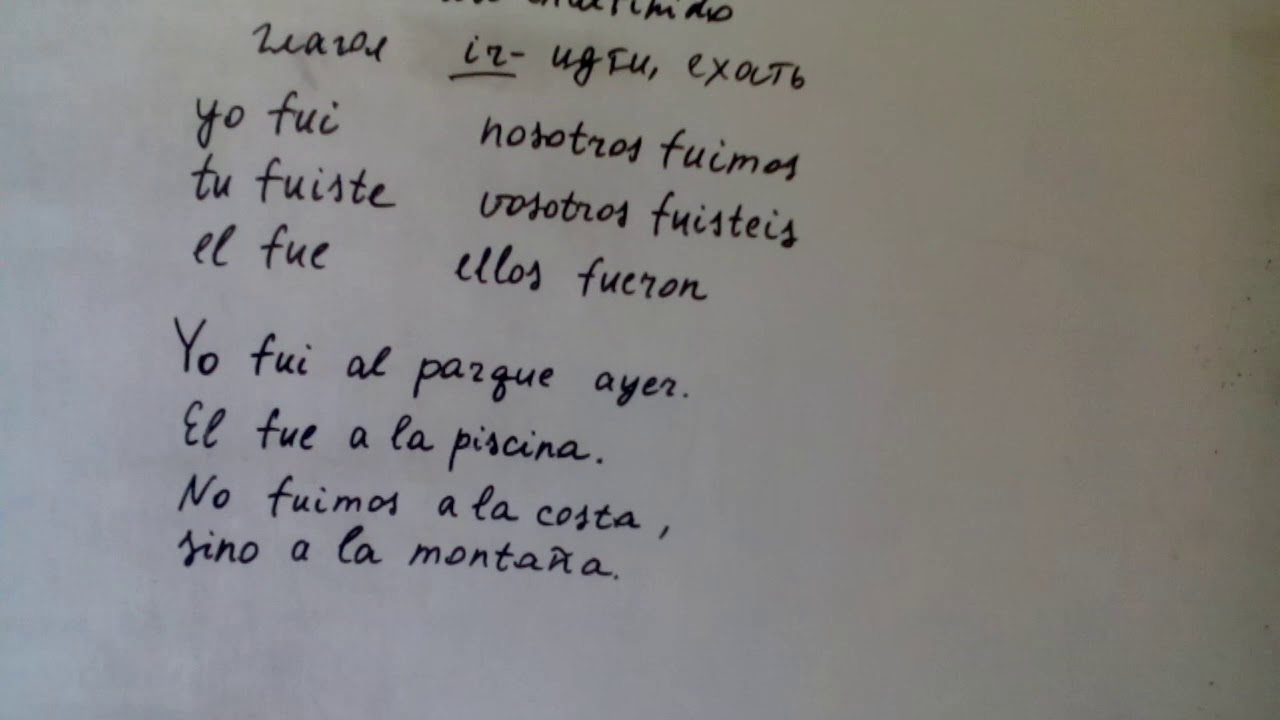 indefinido
глагол ir- идти, ехать
yo fui nosotros fuimos
tu fuiste vosotros fuisteis
el fue ellos fueron
Yo fui al parque ayer.
El fue a la piscina.
No fuimos a la costa,
sino a la montaña.